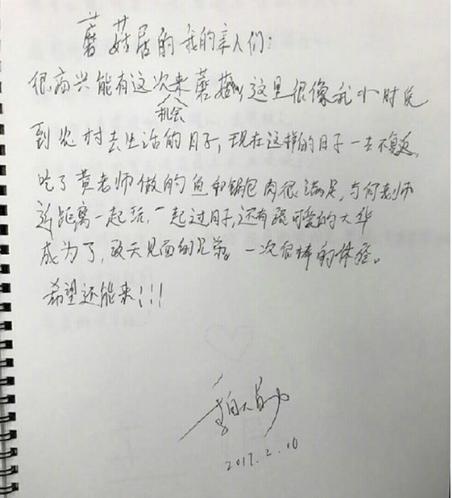 蘑菇居的我的亲人们:
很高兴能有这次机会来蘑菇 这里很像我小时候
到农村去生活的日子,现在这样的日子一去不复返
吃了黄老师做的鱼和锅包肉很满足,与何老师
近距离一起玩,一起过日子,还有跟可爱的大华
成为了,改天见面的兄弟。一次很棒的体验。
希望还能来!!!
2017.2.10